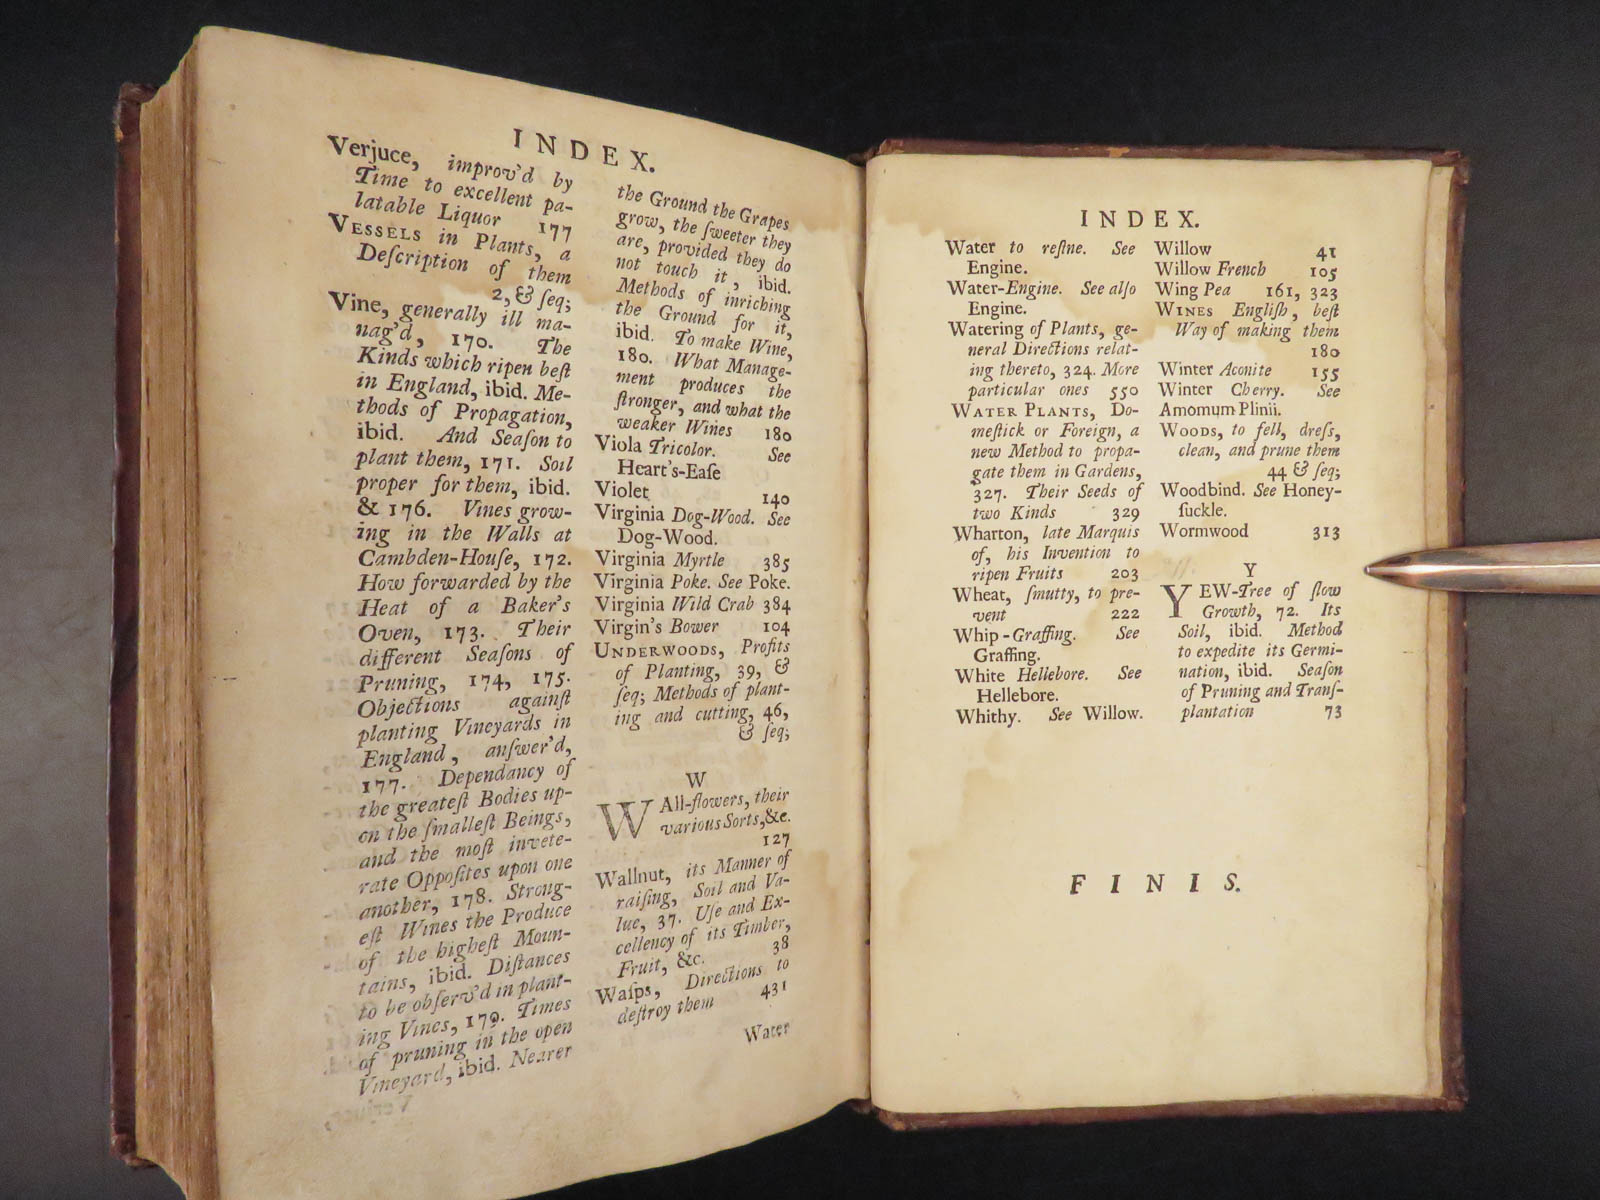 INDEX.
Verjuce, improv'd by
Time to excellent pa-
latable Liquor 177
VESSELS in Plants, a
Deſcription of them
2, & ſeq;
Vine, generally ill ma-
nag'd, 170. The
Kinds which ripen beſt
in England, ibid. Me-
thods of Propagation,
ibid. And Seaſon to
plant them, 171. Soil
proper for them, ibid.
& 176. Vines grow-
ing in the Walls at
Cambden-Houſe, 172.
How forwarded by the
Heat of a Baker's
Oven, 173. Their
different Seaſons of
Pruning, 174, 175.
Objections againſt
planting Vineyards in
England, anſwer'd,
177. Dependancy of
the greateſt Bodies up-
on the ſmalleſt Beings,
and the moſt invete-
rate Oppoſites upon one
another, 178. Strong-
eſt Wines the Produce
of the higheſt Moun-
tains, ibid. Diſtances
to be obſerv'd in plant-
ing Vines, 179. Times
of pruning in the open
Vineyard, ibid. Nearer
the Ground the Grapes
grow, the ſweeter they
are, provided they do
not touch it, ibid.
Methods of inriching
the Ground for it,
ibid. To make Wine,
180. What Manage-
ment produces the
ſtronger, and what the
weaker Wines 180
Viola Tricolor. See
Heart's-Eaſe
Violet 140
Virginia Dog-Wood. See
Dog-Wood.
Virginia Myrtle 385
Virginia Poke. See Poke.
Virginia Wild Crab 384
Virgin's Bower 104
UNDERWOODS, Profits
of Planting, 39, &
ſeq; Methods of plant-
ing and cutting, 46,
& ſeq;
W
WAll-flowers, their
various Sorts, &c.
127
Wallnut, its Manner of
raiſing, Soil and Va-
lue, 37. Uſe and Ex-
cellency of its Timber,
Fruit, &c. 38
Waſps, Directions to
deſtroy them 431
Water
INDEX.
Water to reſine. See
Engine.
Water-Engine. See alſo
Engine.
Watering of Plants, ge-
neral Directions relat-
ing thereto, 324. More
particular ones 550
WATER PLANTS, Do-
meſtick or Foreign, a
new Method to propa-
gate them in Gardens,
327. Their Seeds of
two Kinds 329
Wharton, late Marquis
of, his Invention to
ripen Fruits 203
Wheat, ſmutty, to pre-
vent 222
Whip-Graffing. See
Graffing.
White Hellebore. See
Hellebore.
Whithy. See Willow.
Willow 41
Willow French 105
Wing Pea 161, 323
WINES Engliſh, beſt
Way of making them
180
Winter Aconite 155
Winter Cherry. See
Amomum Plinii.
WOODS, to fell, dreſs,
clean, and prune them
44 & ſeq;
Woodbind. See Honey-
ſuckle.
Wormwood 313
Y
YEW-Tree of ſlow
Growth, 72. Its
Soil, ibid. Method
to expedite its Germi-
nation, ibid. Seaſon
of Pruning and Tranſ-
plantation 73
FINIS.